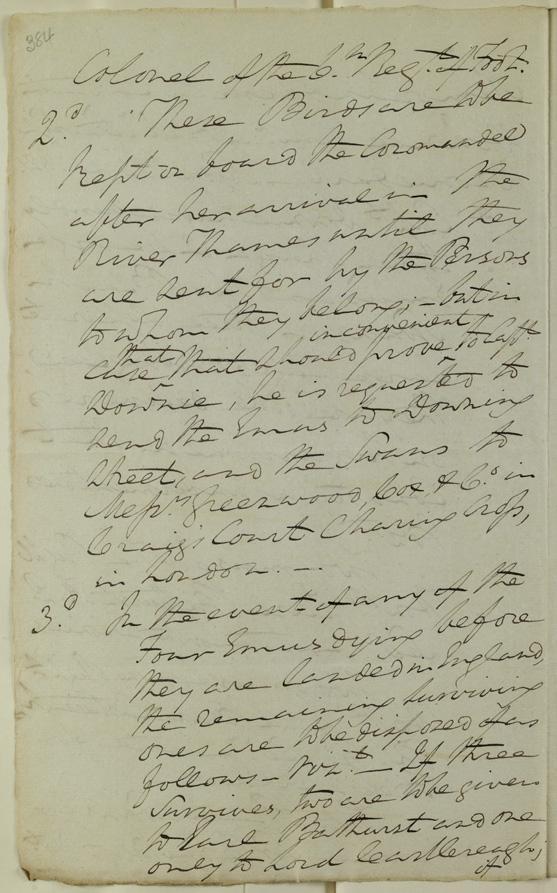 384
Colonel of the 6.th Reg.t of Foot.
2.d These Birds are to be
kept on board the Coromandel
after her arrival in the
River Thames until they
are sent for by the Persons
to whom they belong; - but in
case that should prove inconvenient to Capt.
Downie, he is requested to
send the Emus to Downing
Street, and the Swans to
Mess.rs Greenwood, Cox & C.o in
Craigs Court Charing Cross,
in London. -.-
3.d In the event of any of the
Four Emus dying before
they are landed in England,
the remaining surviving
ones are to be disposed of as
follows - Viz.t - If three
Survives, two are to be given
to Earl Bathurst and one
only to Lord Castlereagh;
of